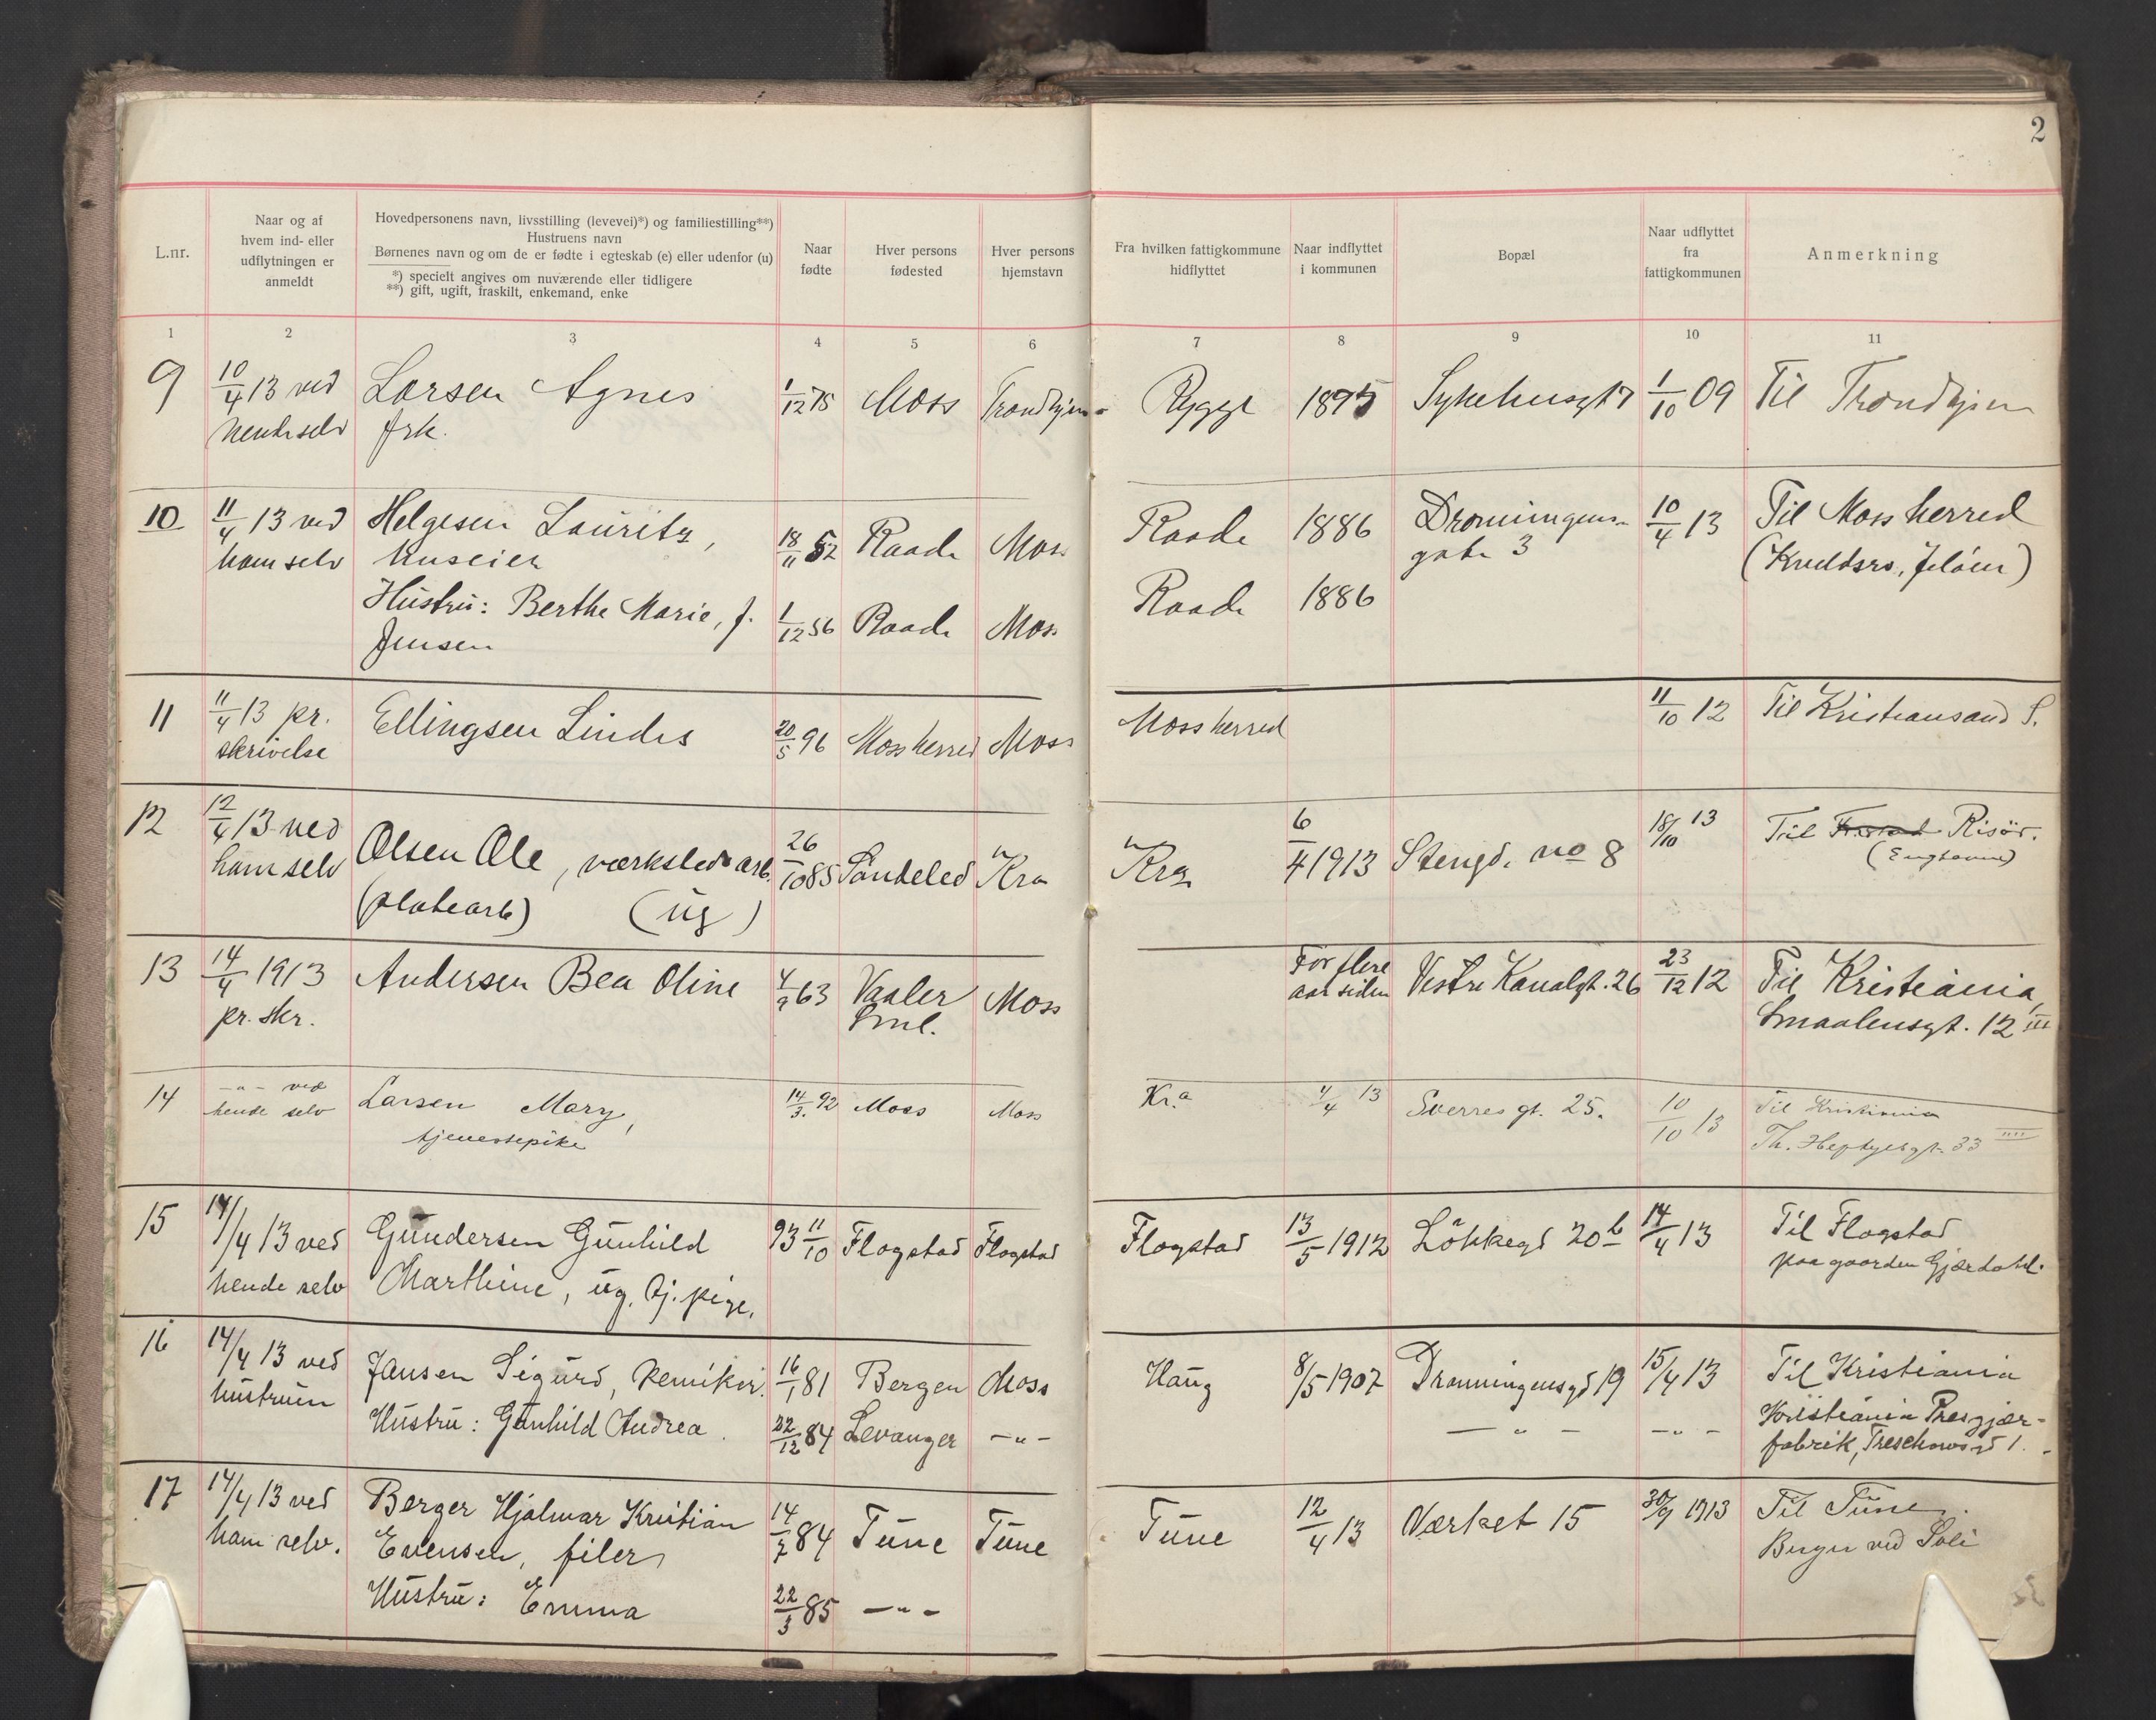 2
L.nr.
Naar og af
hvem ind- eller
udflytningen er
anmeldt
Hovedpersonens navn, livsstilling (levevei)*) og familiestilling**)
Hustruens navn
Børnenes navn og om de er fødte i egteskab (e) eller udenfor (u)
*) specielt angives om nuværende eller tidligere
**) gift, ugift, fraskilt, enkemand, enke
Naar
fødte
Hver persons
fødested
Hver persons
hjemstavn
Fra hvilken fattigkommune
hidflyttet
Naar indflyttet
i kommunen
Bopæl
Naar udflyttet
fra
fattigkommunen
Anmerkning
1 2 3 4 5 6 7 8 9 10 11
9 10/4 13 ved Larsen Agnes 1/12 75 Moss Trondhjem Rygge 1895 Sykehusgt 7 1/10 09 Til Trondhjem
hende selv frk.
10 11/4 13 ved Helgesen Lauritz, 18/11 52 Raade Moss Raade 1886 Dronningens- 10/4 13 Til Moss herred
ham selv huseier gate 3 (Kuldsrø, Jeløen)
Hustru: Berthe Marie, f. 1/12 56 Raade Moss Raade 1886
Jensen
11 11/4 13 pr. Ellingsen 20/5 96 Moss herred Moss Moss herred 11/10 12 Til Kristiansand S.
skrivelse
12 12/4 13 ved Olsen Ole, værksteds arb. 26/10 85 Søndeled Kra Kra 6/4 1913 Stengd. no 8 18/10 13 Til Risör.
ham selv (platearb) (ug)
13 14/4 1913 Andersen Bea Oline 4/9 63 Vaaler Moss For flere Vestre Kanalgt. 26 23/12 12 Til Kristiania,
pr. skr. Sml. aar siden Smaalensgt. 12 III
14 -"- ved Larsen Mary, 14/3. 92 Moss Moss Kr.a 4/4 13 Sverres gt. 25. 10/10 13 Til Kristiania
hende selv tjenestepike Th. Heftyesgt. 33 IIII
15 14/4 13 ved Gundersen Gunhild 93 11/10 Flogstad Flogstad Flogstad 13/5 1912 Løkkegd 20 b 14/4 13 Til Flogstad
hende selv Marthine, ug. tj. pige. paa gaarden Gjærdahl.
16 14/4 13 ved Jansen Sigurd, kemiker. 16/1 81 Bergen Moss Haug 8/5 1907 Dronningensgd 19 15/4 13 Til Kristiania
hustruen Hustru: Gunhild Andrea. 22/12 84 Levanger -"- -"- -"- Kristiania Presgjær-
fabrik, Treschowsgd 1.
17 14/4 13 ved Berger Hjalmar Kristian 14/7 84 Tune Tune Tune 12/4 13 Værket 15 30/9 1913 Til Tune.
ham selv. Evensen, filer Berger ved Soli
Hustru: Emma 22/3 85 -"-